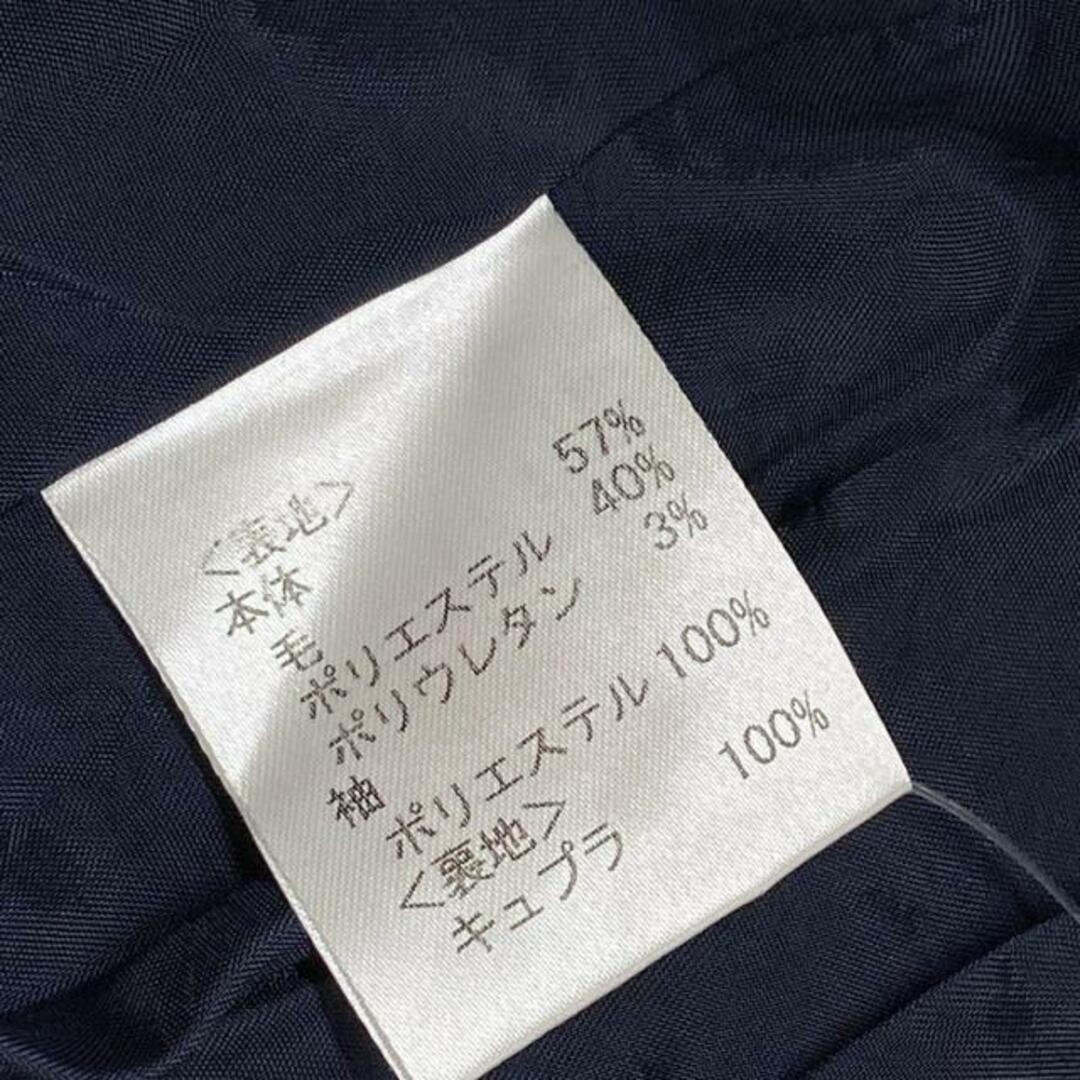 <裏地>
本体
毛 57%
ポリエステル 40%
ポリウレタン 3%
袖
ポリエステル 100%
<裏地>
キュプラ 100%